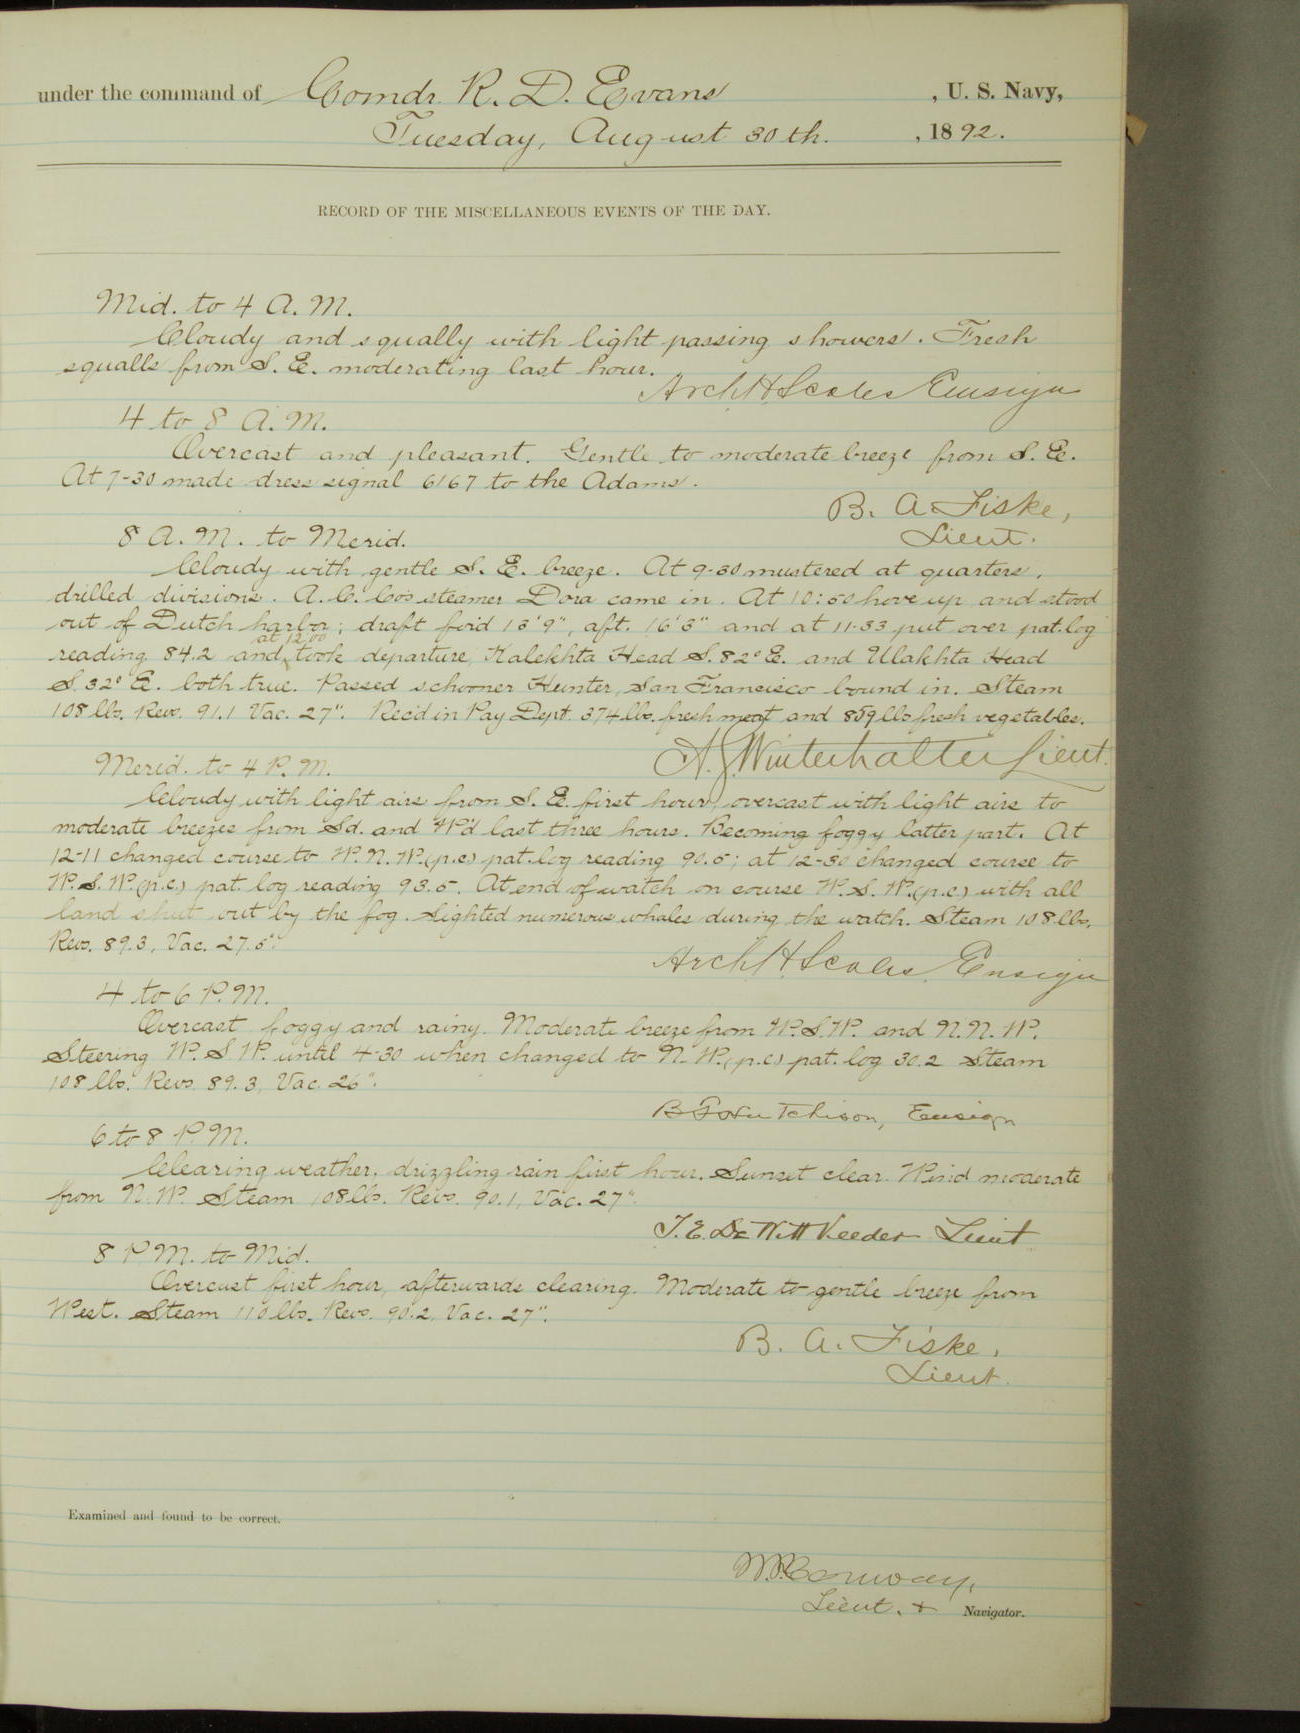 under the command of Comdr. R. D. Evans , U. S. Navy,
Tuesday, August 30th. , 1892.
RECORD OF THE MISCELLANEOUS EVENTS OF THE DAY.
Mid. to 4 A. M.
Cloudy and squally with light passing showers. Fresh
squalls from S. E. moderating last hour.
Arch H Scales Ensign
4 to 8 A. M.
Overcast and pleasant. Gentle to moderate breeze from S. E.
At 7-30 made dress signal 6167 to the Adams.
B. A. Fiske,
Lieut.
8 A. M. to Merid.
Cloudy with gentle S. E. breeze. At 9-30 mustered at quarters,
drilled divisions. A. C. Co's steamer Dora came in. At 10:50 hove up and stood
out of Dutch harbor; draft for'd 13'9", aft. 16'3" and at 11-33 put over pat. log
reading 84.2 and at 12.00 took departure, Kalekhta Head S. 82° E. and Ulakhta Head
S. 32° E. both true. Passed schooner Hunter, San Francisco bound in. Steam
108 lbs. Revs. 91.1 Vac. 27". Rec'd in Pay Dept. 374 lbs. fresh meat and 859 lbs fresh vegetables.
A. G. Winterhalter Lieut.
Merid. to 4 P. M.
Cloudy with light airs from S. E. first hour, overcast with light airs to
moderate breezes from Sd. and W'd last three hours. Becoming foggy latter part. At
12-11 changed course to W. N. W. (p.c.) pat. log reading 90.5; at 12-30 changed course to
W. S. W. (p.c.) pat. log reading 93.5. At end of watch on course W. S. W. (p.c.) with all
land shut out by the fog. Sighted numerous whales during the watch. Steam 108 lbs.
Revs. 89.3, Vac. 27.5".
Arch H Scales Ensign
4 to 6 P. M.
Overcast foggy and rainy. Moderate breeze from W. S. W. and N. N. W.
Steering W. S. W. until 4-30 when changed to N. W. (p.c.) pat. log 30.2 Steam
108 lbs. Revs. 89.3, Vac. 26".
B F Hutchison, Ensign
6 to 8 P. M.
Clearing weather, drizzling rain first hour. Sunset clear. Wind moderate
from N. W. Steam 108 lbs. Revs. 90.1, Vac. 27".
T. E. De Witt Veeder Lieut
8 P M. to Mid.
Overcast first hour, afterwards clearing. Moderate to gentle breeze from
West. Steam 110 lbs. Revs. 90.2, Vac. 27".
B. A. Fiske,
Lieut.
Examined and found to be correct.
Conway,
Lieut. & Navigator.